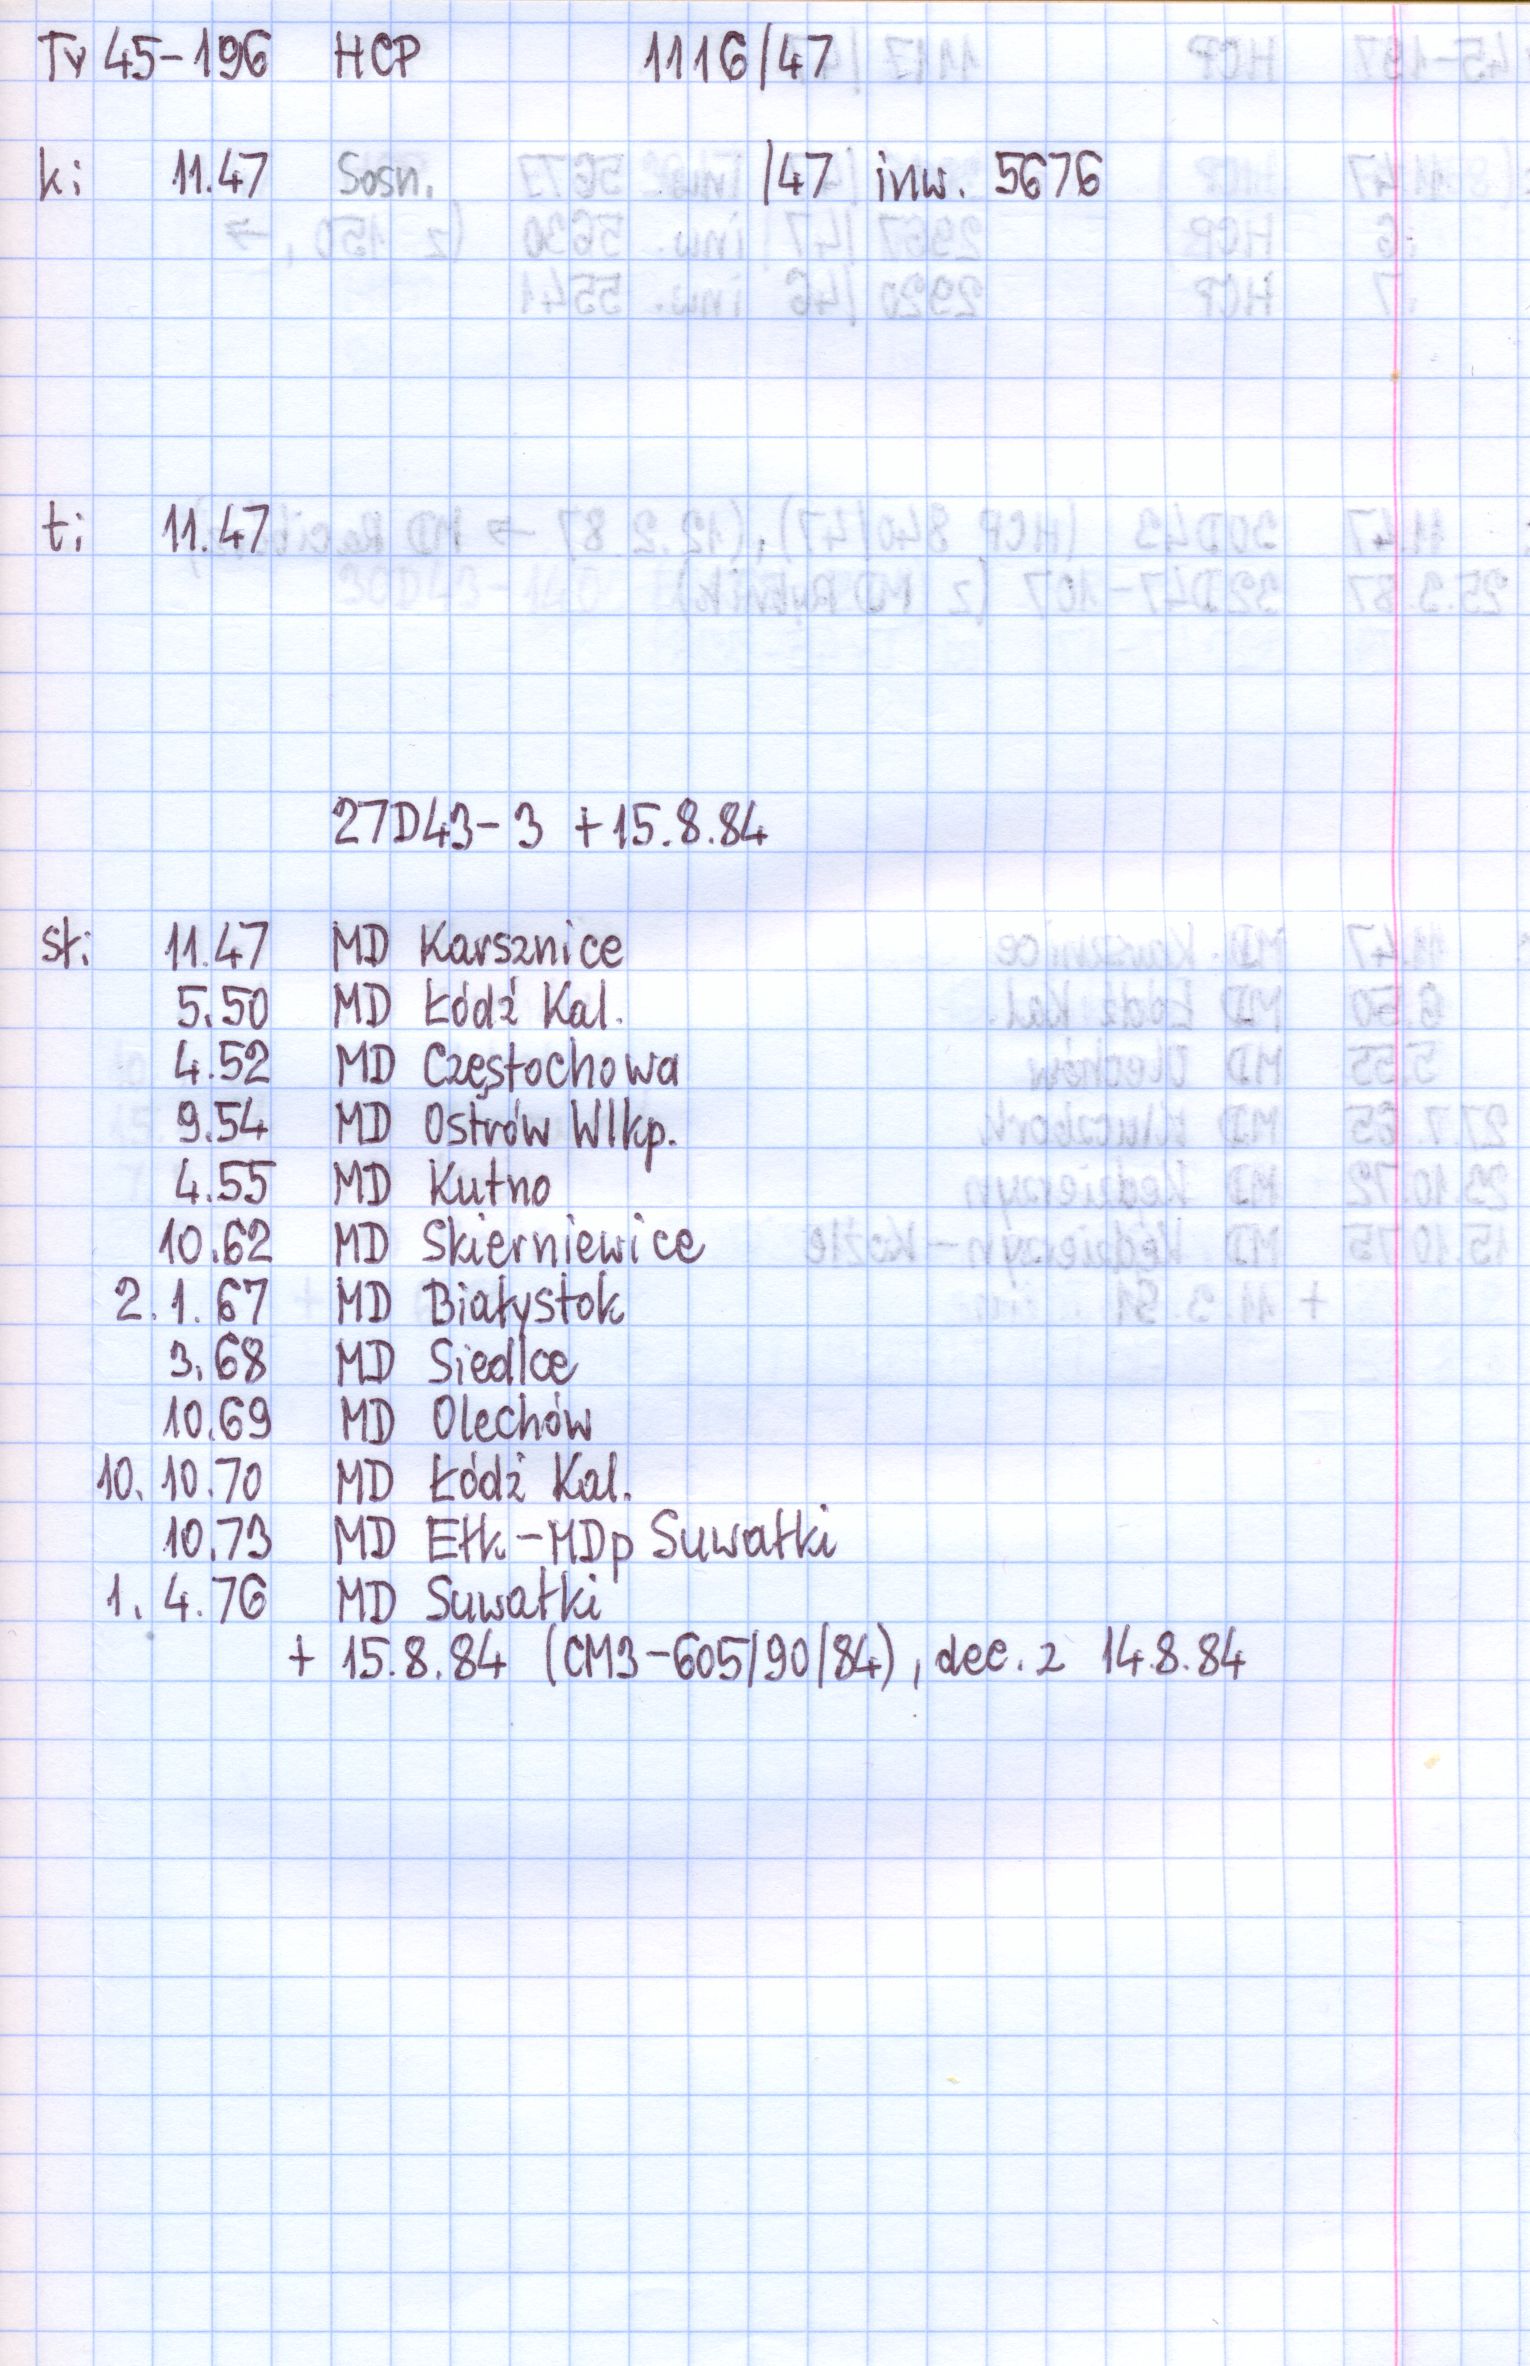 Ty 45-196 HCP 1116/47
k: 11.47 Sosn. /47 inw. 5676
t: 11.47
27D43-3 +15.8.84
st: 11.47 MD Karsznice
5.50 MD Łódź Kal.
4.52 MD Częstochowa
9.54 MD Ostrów Wlkp.
4.55 MD Kutno
10.62 MD Skierniewice
2.1.67 MD Białystok
3.68 MD Siedlce
10.69 MD Olechów
10.10.70 MD Łódź Kal.
10.73 MD Ełk-MDp Suwałki
1.4.76 MD Suwałki
+ 15.8.84 (CM3-605/90/84), dec. z 14.8.84